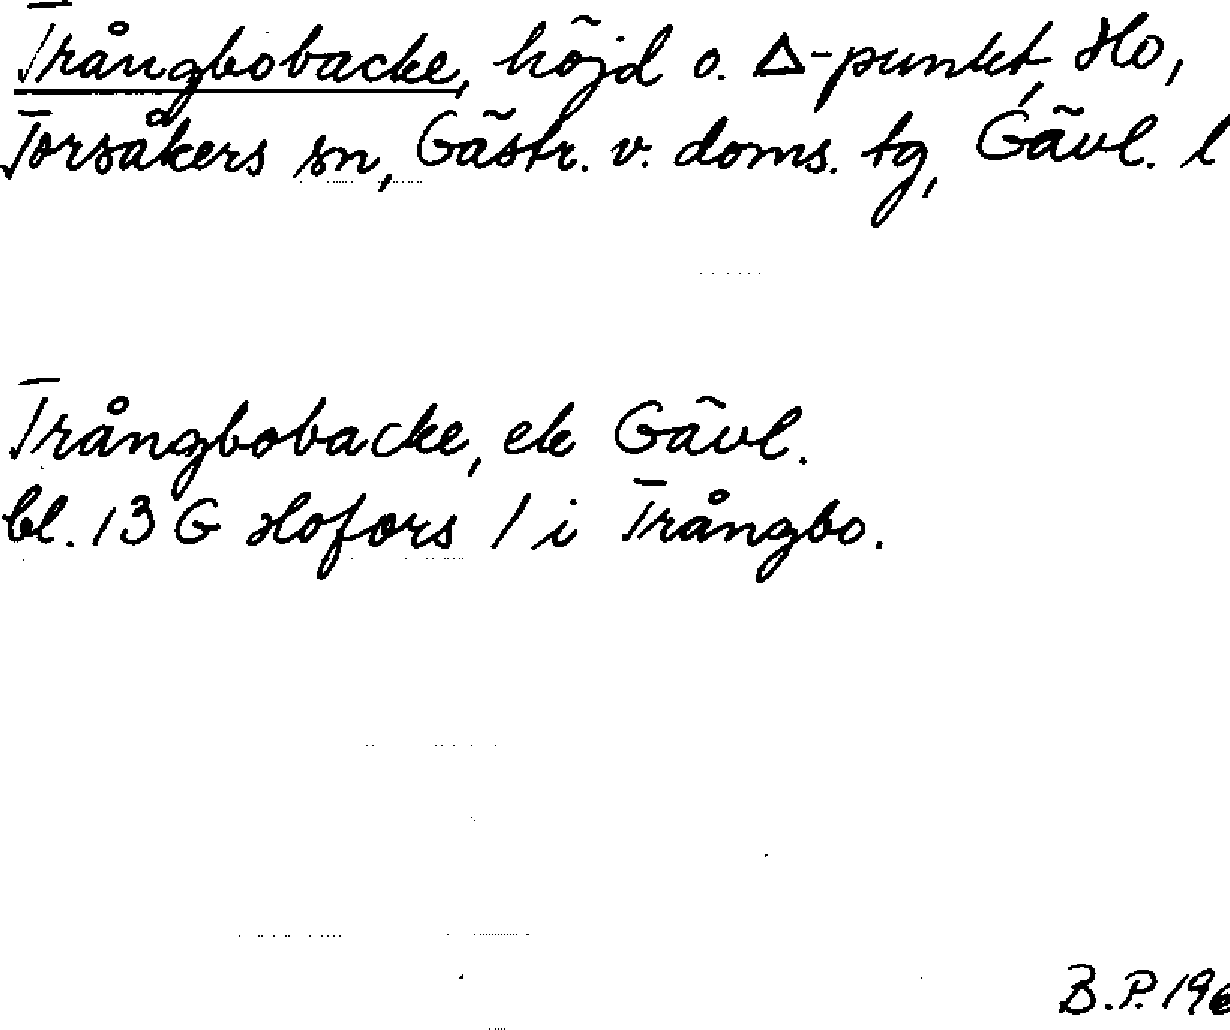 Trångbobacke, höjd o. Δ-punkt, Ho,
Torsåkers sn, Gästr. v. doms. tg, Gävl. l
Trångbobacke, ek Gävl.
bl. 13 G Hofors 1 i Trångbo.
B.P. 196